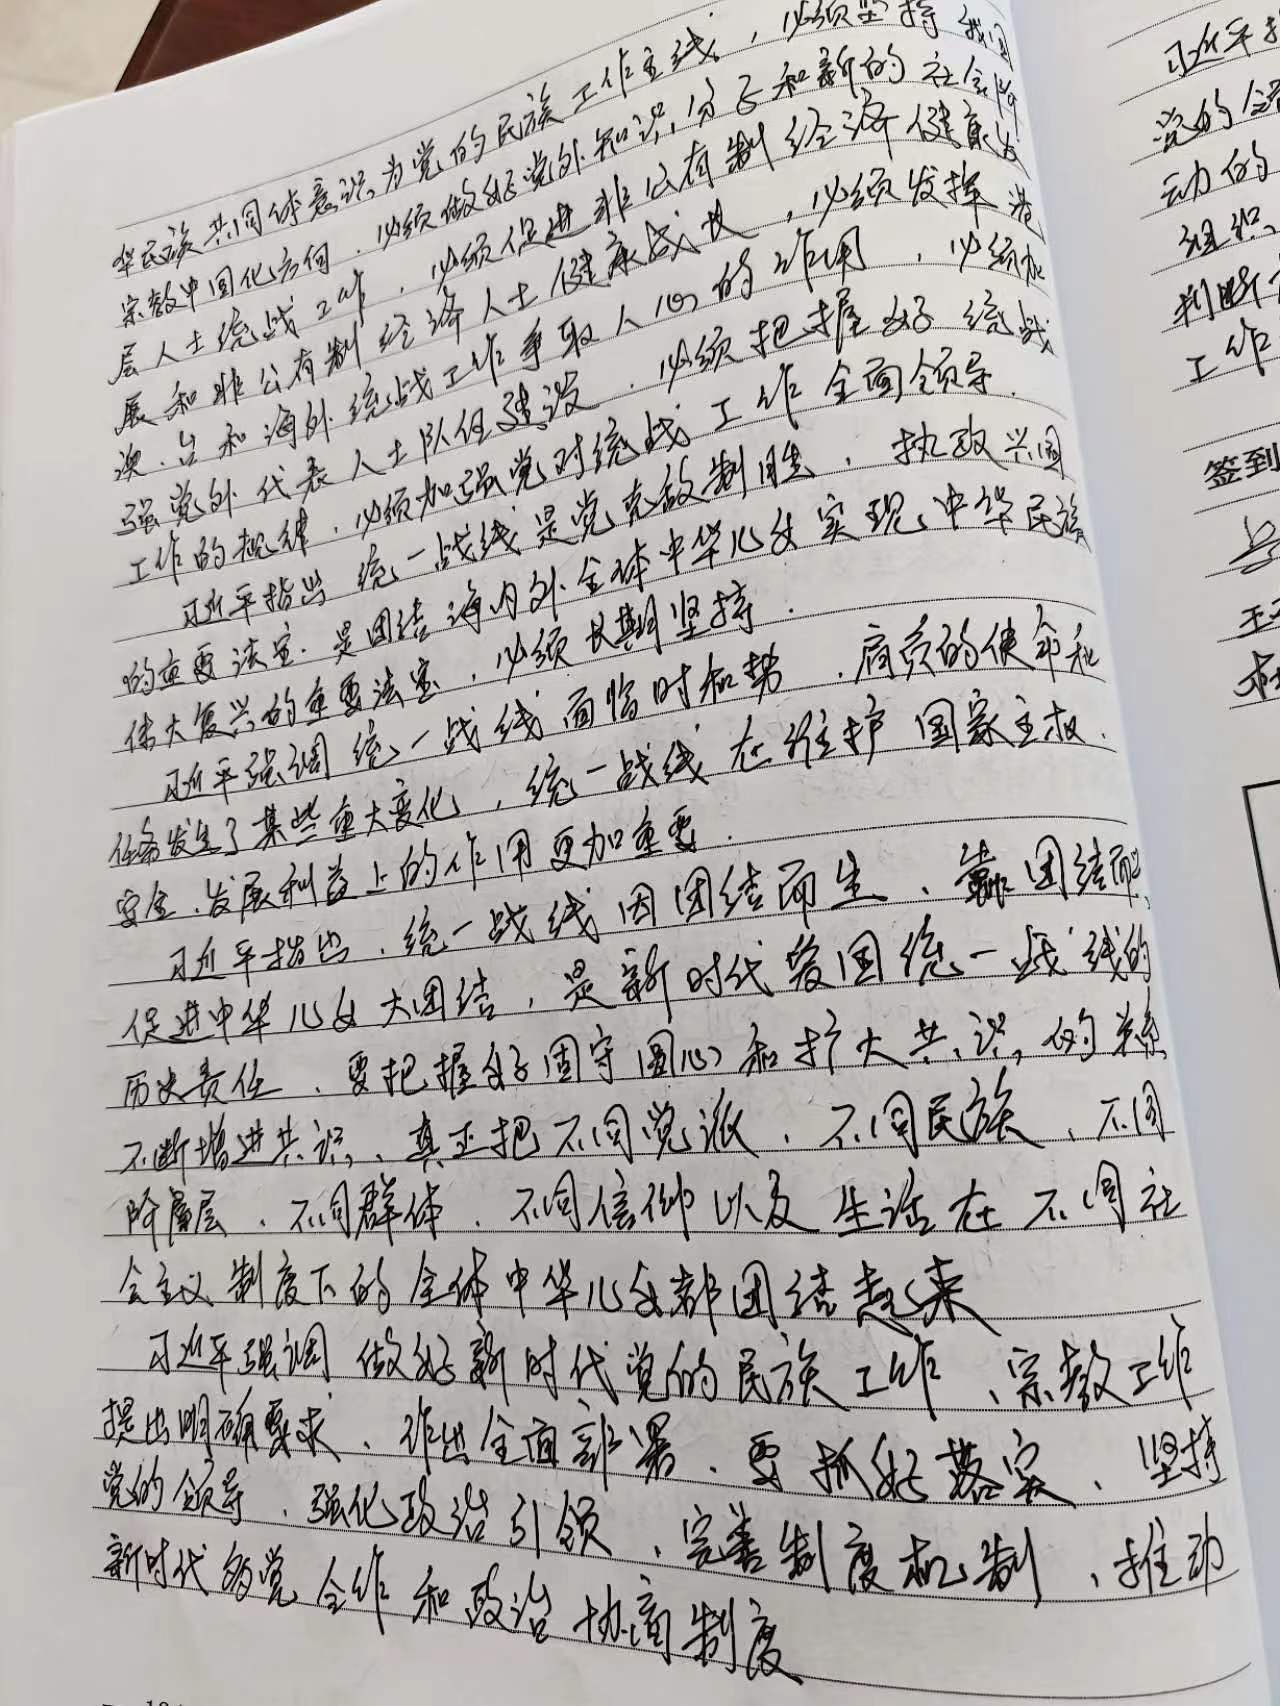 华民族共同体意识为党的民族工作主线，必须坚持我国
宗教中国化方向、必须做好党外知识分子和新的社会阶
层人士统战工作、必须促进非公有制经济健康发
展和非公有制经济人士健康成长，必须发挥港
澳、台和海外统战工作争取人心的作用、必须加
强党外代表人士队伍建设、必须把握好统战
工作的规律、必须加强党对统战工作全面领导.
习近平指出统一战线是党克敌制胜、执政兴国
的重要法宝.是团结海内外全体中华儿女实现中华民族
伟大复兴的重要法宝，必须长期坚持.
习近平强调统一战线面临时和势、肩负的使命和
任务发生了某些重大变化，统一战线在维护国家主权、
安全、发展利益上的作用更加重要.
习近平指出、统一战线因团结而生、靠团结而
促进中华儿女大团结，是新时代爱国统一战线的
历史责任、要把握好固守圆心和扩大共识的关系
不断增进共识、真正把不同党派、不同民族、不同
阶层、不同群体、不同信仰以及生活在不同社
会主义制度下的全体中华儿女都团结起来
习近平强调做好新时代党的民族工作、宗教工作
提出明确要求、作出全面部署、要抓好落实、坚持
党的领导、强化政治引领、完善制度机制、推动
新时代多党合作和政治协商制度
习近平
党的
动的
组织
判断
工作
签到